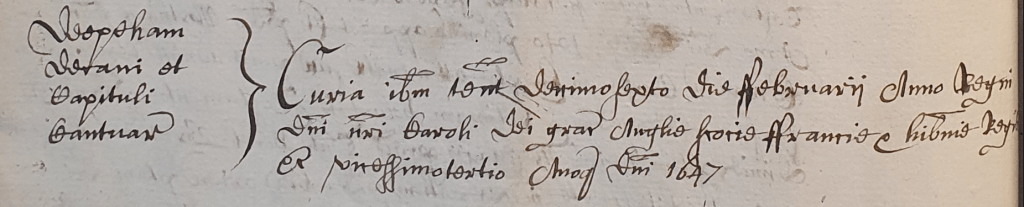 Meopeham
Decani et
Capituli
Cantuar
Curia ibm tent decimosexto die ffebruarii Anno Regni
dni nri Caroli dei grac Anglie Scocie ffrancie & hibnie Regis
&c vicessimotertio Annoq dni 1647